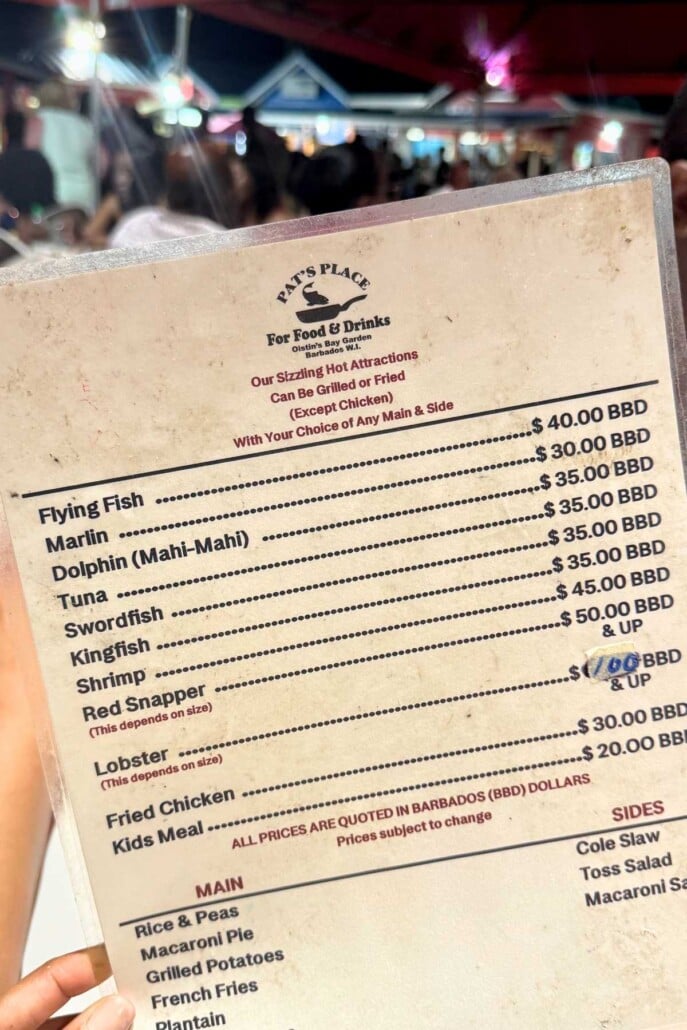 PAT'S PLACE
For Food & Drinks
Oistin's Bay Garden
Barbados W.I.
Our Sizzling Hot Attractions
Can Be Grilled or Fried
(Except Chicken)
With Your Choice of Any Main & Side
Flying Fish $ 40.00 BBD
Marlin $ 30.00 BBD
Dolphin (Mahi-Mahi) $ 35.00 BBD
Tuna $ 35.00 BBD
Swordfish $ 35.00 BBD
Kingfish $ 35.00 BBD
Shrimp $ 45.00 BBD
Red Snapper $ 50.00 BBD
(This depends on size) & UP
Lobster $ 100 BBD
(This depends on size) & UP
Fried Chicken $ 30.00 BBD
Kids Meal $ 20.00 BB
ALL PRICES ARE QUOTED IN BARBADOS (BBD) DOLLARS
Prices subject to change
MAIN
Rice & Peas
Macaroni Pie
Grilled Potatoes
French Fries
Plantain
SIDES
Cole Slaw
Toss Salad
Macaroni Sa